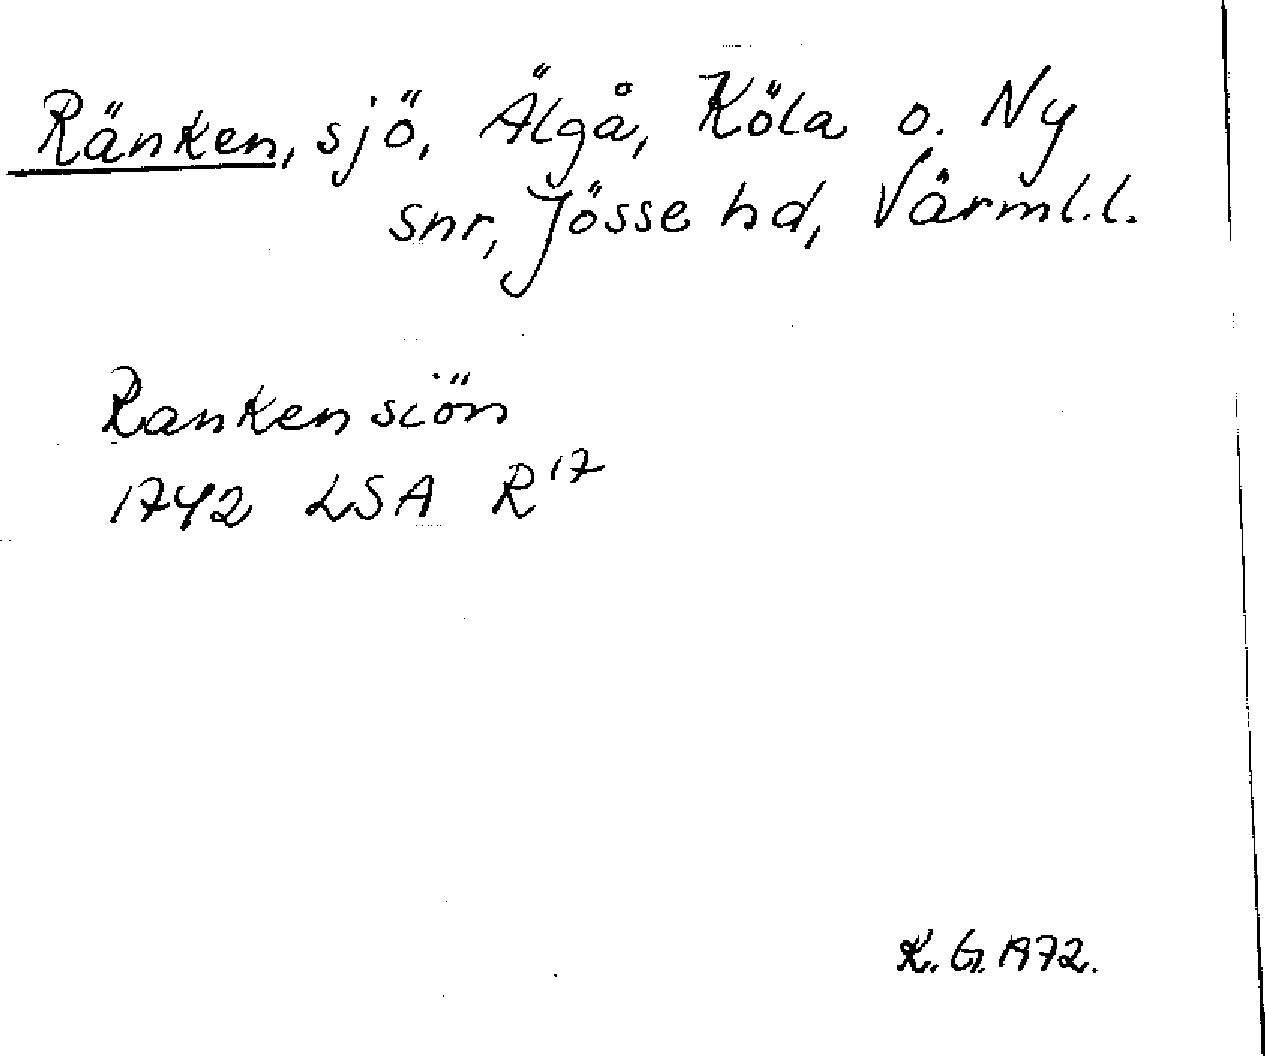 Ränken, sjö, Älgå, Köla o. Ny
snr, Jösse hd, Värml.l.
Rankensiön
1742 LSA R17
K.G. 1972.